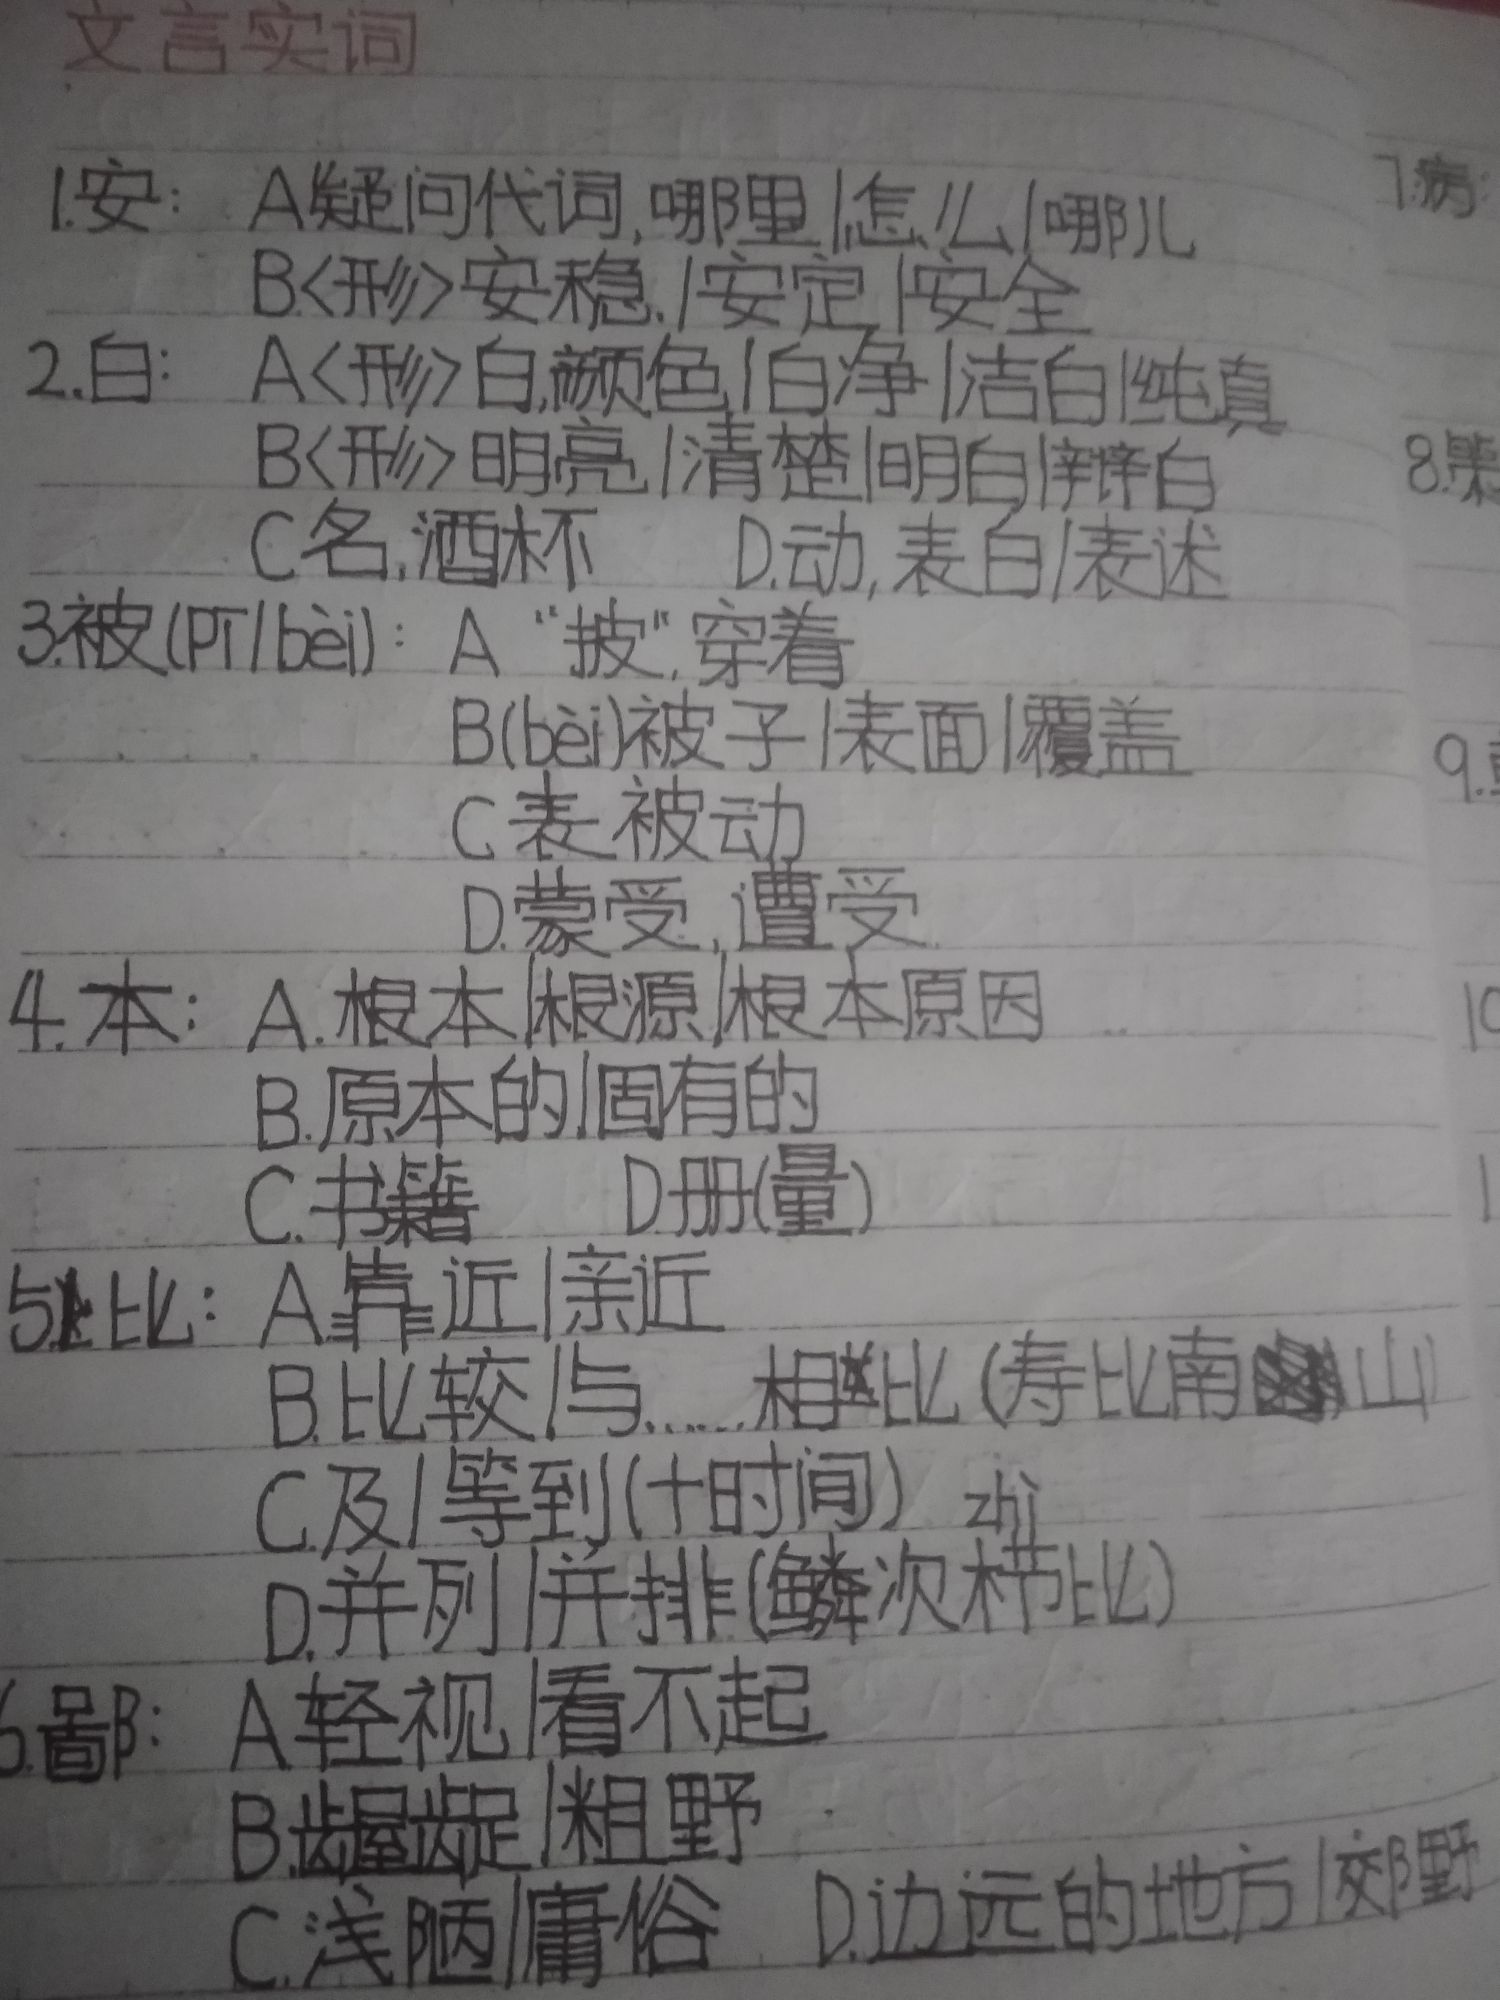 文言实词
1.安: A疑问代词,哪里/怎么/哪儿
B.<形>安稳./安定/安全
2.白: A<形>白,颜色/白净/洁白/纯真
B<形>明亮/清楚/明白/辩白
C名,酒杯 D.动,表白/表述
3.被(pī/bèi): A "披",穿着
B(bèi)被子/表面/覆盖
C表被动
D.蒙受,遭受
4.本: A.根本/根源/根本原因
B.原本的/固有的
C.书籍 D册(量)
5.比: A.靠近/亲近
B.比较/与......相比(寿比南山)
C.及/等到(+时间) zhì
D.并列/并排(鳞次栉比)
6.鄙: A轻视/看不起
B.龌龊/粗野
C.浅陋/庸俗 D.边远的地方/郊野
7.病:
8.
9.
10
1